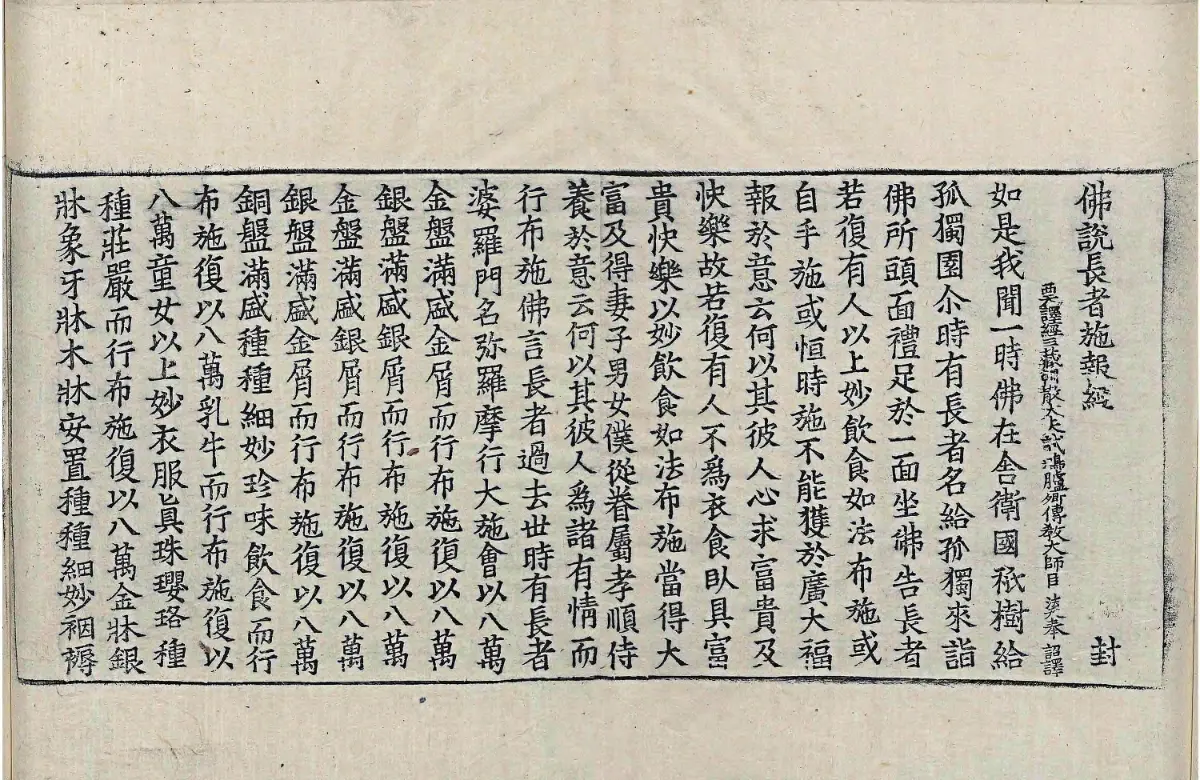 佛說長者施報經 封
西天譯經三藏朝散大夫試鴻臚卿傳教大師臣 法天奉 詔譯
如是我聞一時佛在舍衛國祇樹給
孤獨園尒時有長者名給孤獨來詣
佛所頭面禮足於一面坐佛告長者
若復有人以上妙飲食如法布施或
自手施或恒時施不能獲於廣大福
報於意云何以其彼人心求富貴及
快樂故若復有人不爲衣食臥具富
貴快樂以妙飲食如法布施當得大
富及得妻子男女僕從眷屬孝順侍
養於意云何以其彼人爲諸有情而
行布施佛言長者過去世時有長者
婆羅門名弥羅摩行大施會以八萬
金盤滿盛金屑而行布施復以八萬
銀盤滿盛銀屑而行布施復以八萬
金盤滿盛銀屑而行布施復以八萬
銀盤滿盛金屑而行布施復以八萬
銅盤滿盛種種細妙珍味飲食而行
布施復以八萬乳牛而行布施復以
八萬童女以上妙衣服眞珠瓔珞種
種莊嚴而行布施復以八萬金牀銀
牀象牙牀木牀安置種種細妙裀褥